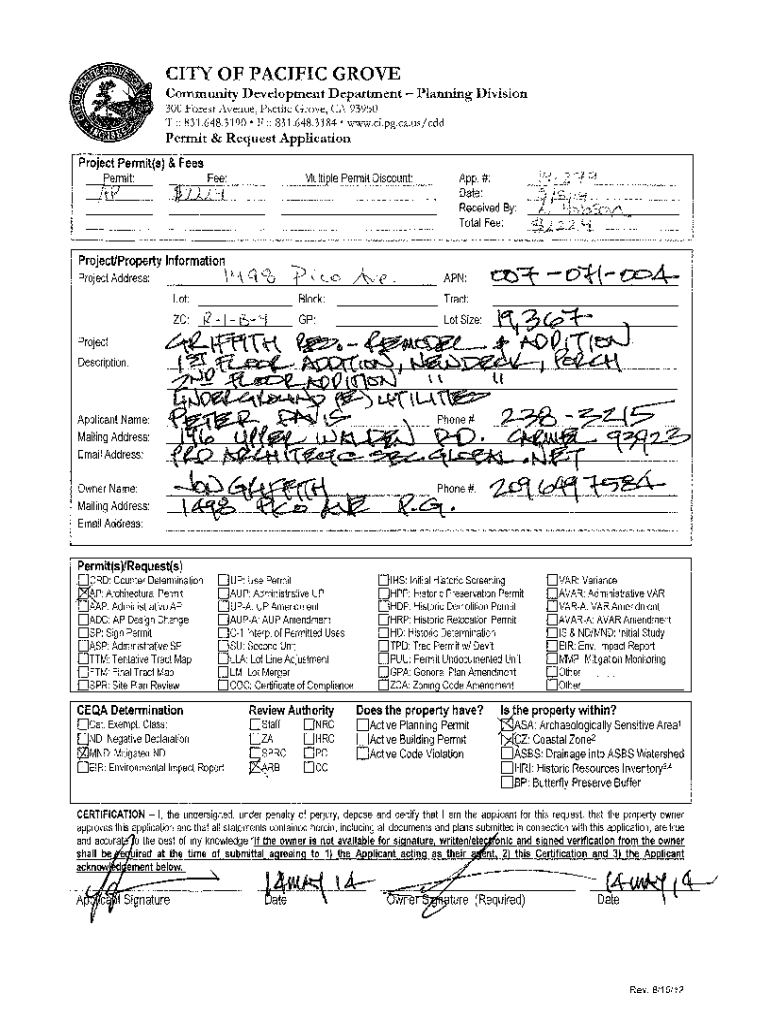 CITY OF PACIFIC GROVE
Community Development Department – Planning Division
300 Forest Avenue, Pacific Grove, CA 93950
T :: 831.648.3190 • F :: 831.648.3184 • www.ci.pg.ca.us/cdd
Permit & Request Application
Project Permit(s) & Fees
Permit: Fee: Multiple Permit Discount: App. #: 14-279
AP $2224 Date:
Received By:
Total Fee: $2224
Project/Property Information
Project Address: 1498 Pico Ave. APN: 007-071-004
Lot: Block: Tract:
ZC: R-1-B-4 GP: Lot Size: 19,367
Project GRIFFITH RES. - REMODEL & ADDITION
Description: 1ST FLOOR ADDITION, NEW DECK, PORCH
2ND FLOOR ADDITION " "
UNDERGROUND (E) UTILITIES
Applicant Name: PETER DAVIS Phone # 238-3215
Mailing Address: 196 UPPER WALDEN RD. CARMEL 93923
Email Address: PRO ARCHITECT@SBCGLOBAL.NET
Owner Name: JON GRIFFITH Phone #: 209 649 7584
Mailing Address: 1498 PICO AVE P.G.
Email Address:
Permit(s)/Request(s)
CRD: Counter Determination UP: Use Permit IHS: Initial Historic Screening VAR: Variance
AP: Architectural Permit AUP: Administrative UP HPP: Historic Preservation Permit AVAR: Administrative VAR
AAP: Administrative AP UP-A: UP Amendment HDP: Historic Demolition Permit VAR-A: VAR Amendment
ADC: AP Design Change AUP-A: AUP Amendment HRP: Historic Relocation Permit AVAR-A: AVAR Amendment
SP: Sign Permit C-1 Interp. of Permitted Uses HD: Historic Determination IS & ND/MND: Initial Study
ASP: Administrative SP SU: Second Unit TPD: Tree Permit w/ Dev't EIR: Env. Impact Report
TTM: Tentative Tract Map LLA: Lot Line Adjustment PUU: Permit Undocumented Unit MMP: Mitigation Monitoring
FTM: Final Tract Map LM: Lot Merger GPA: General Plan Amendment Other
SPR: Site Plan Review COC: Certificate of Compliance ZCA: Zoning Code Amendment Other
CEQA Determination Review Authority Does the property have? Is the property within?
Cat. Exempt. Class: Staff NRC Active Planning Permit ASA: Archaeologically Sensitive Area1
ND: Negative Declaration ZA HRC Active Building Permit CZ: Coastal Zone2
MND: Mitigated ND SPRC PC Active Code Violation ASBS: Drainage into ASBS Watershed
EIR: Environmental Impact Report ARB CC HRI: Historic Resources Inventory3,4
BP: Butterfly Preserve Buffer
CERTIFICATION – I, the undersigned, under penalty of perjury, depose and certify that I am the applicant for this request, that the property owner
approves this application and that all statements contained herein, including all documents and plans submitted in connection with this application, are true
and accurate to the best of my knowledge. If the owner is not available for signature, written/electronic and signed verification from the owner
shall be required at the time of submittal agreeing to 1) the Applicant acting as their agent, 2) this Certification and 3) the Applicant
acknowledgement below.
14 MAY 14 14 MAY 14
Applicant Signature Date Owner Signature (Required) Date
Rev. 8/15/12